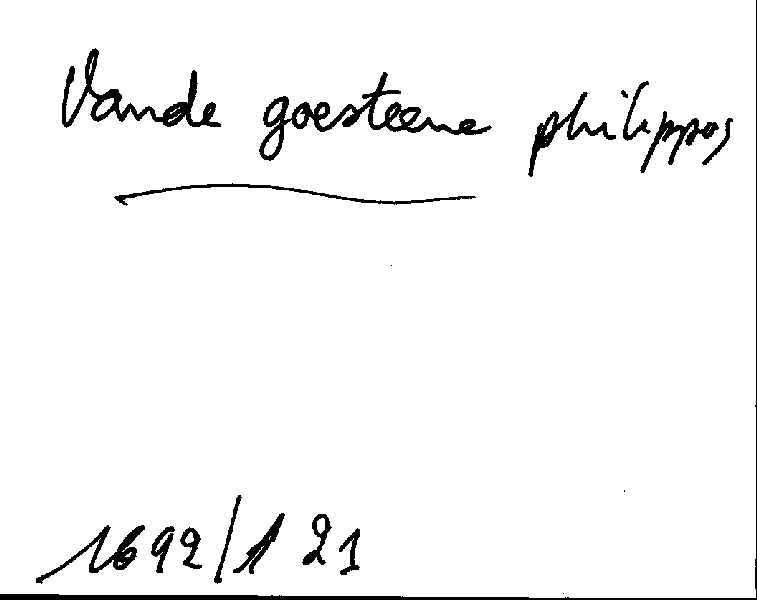 Vande goesteene philippos
1692/1 21